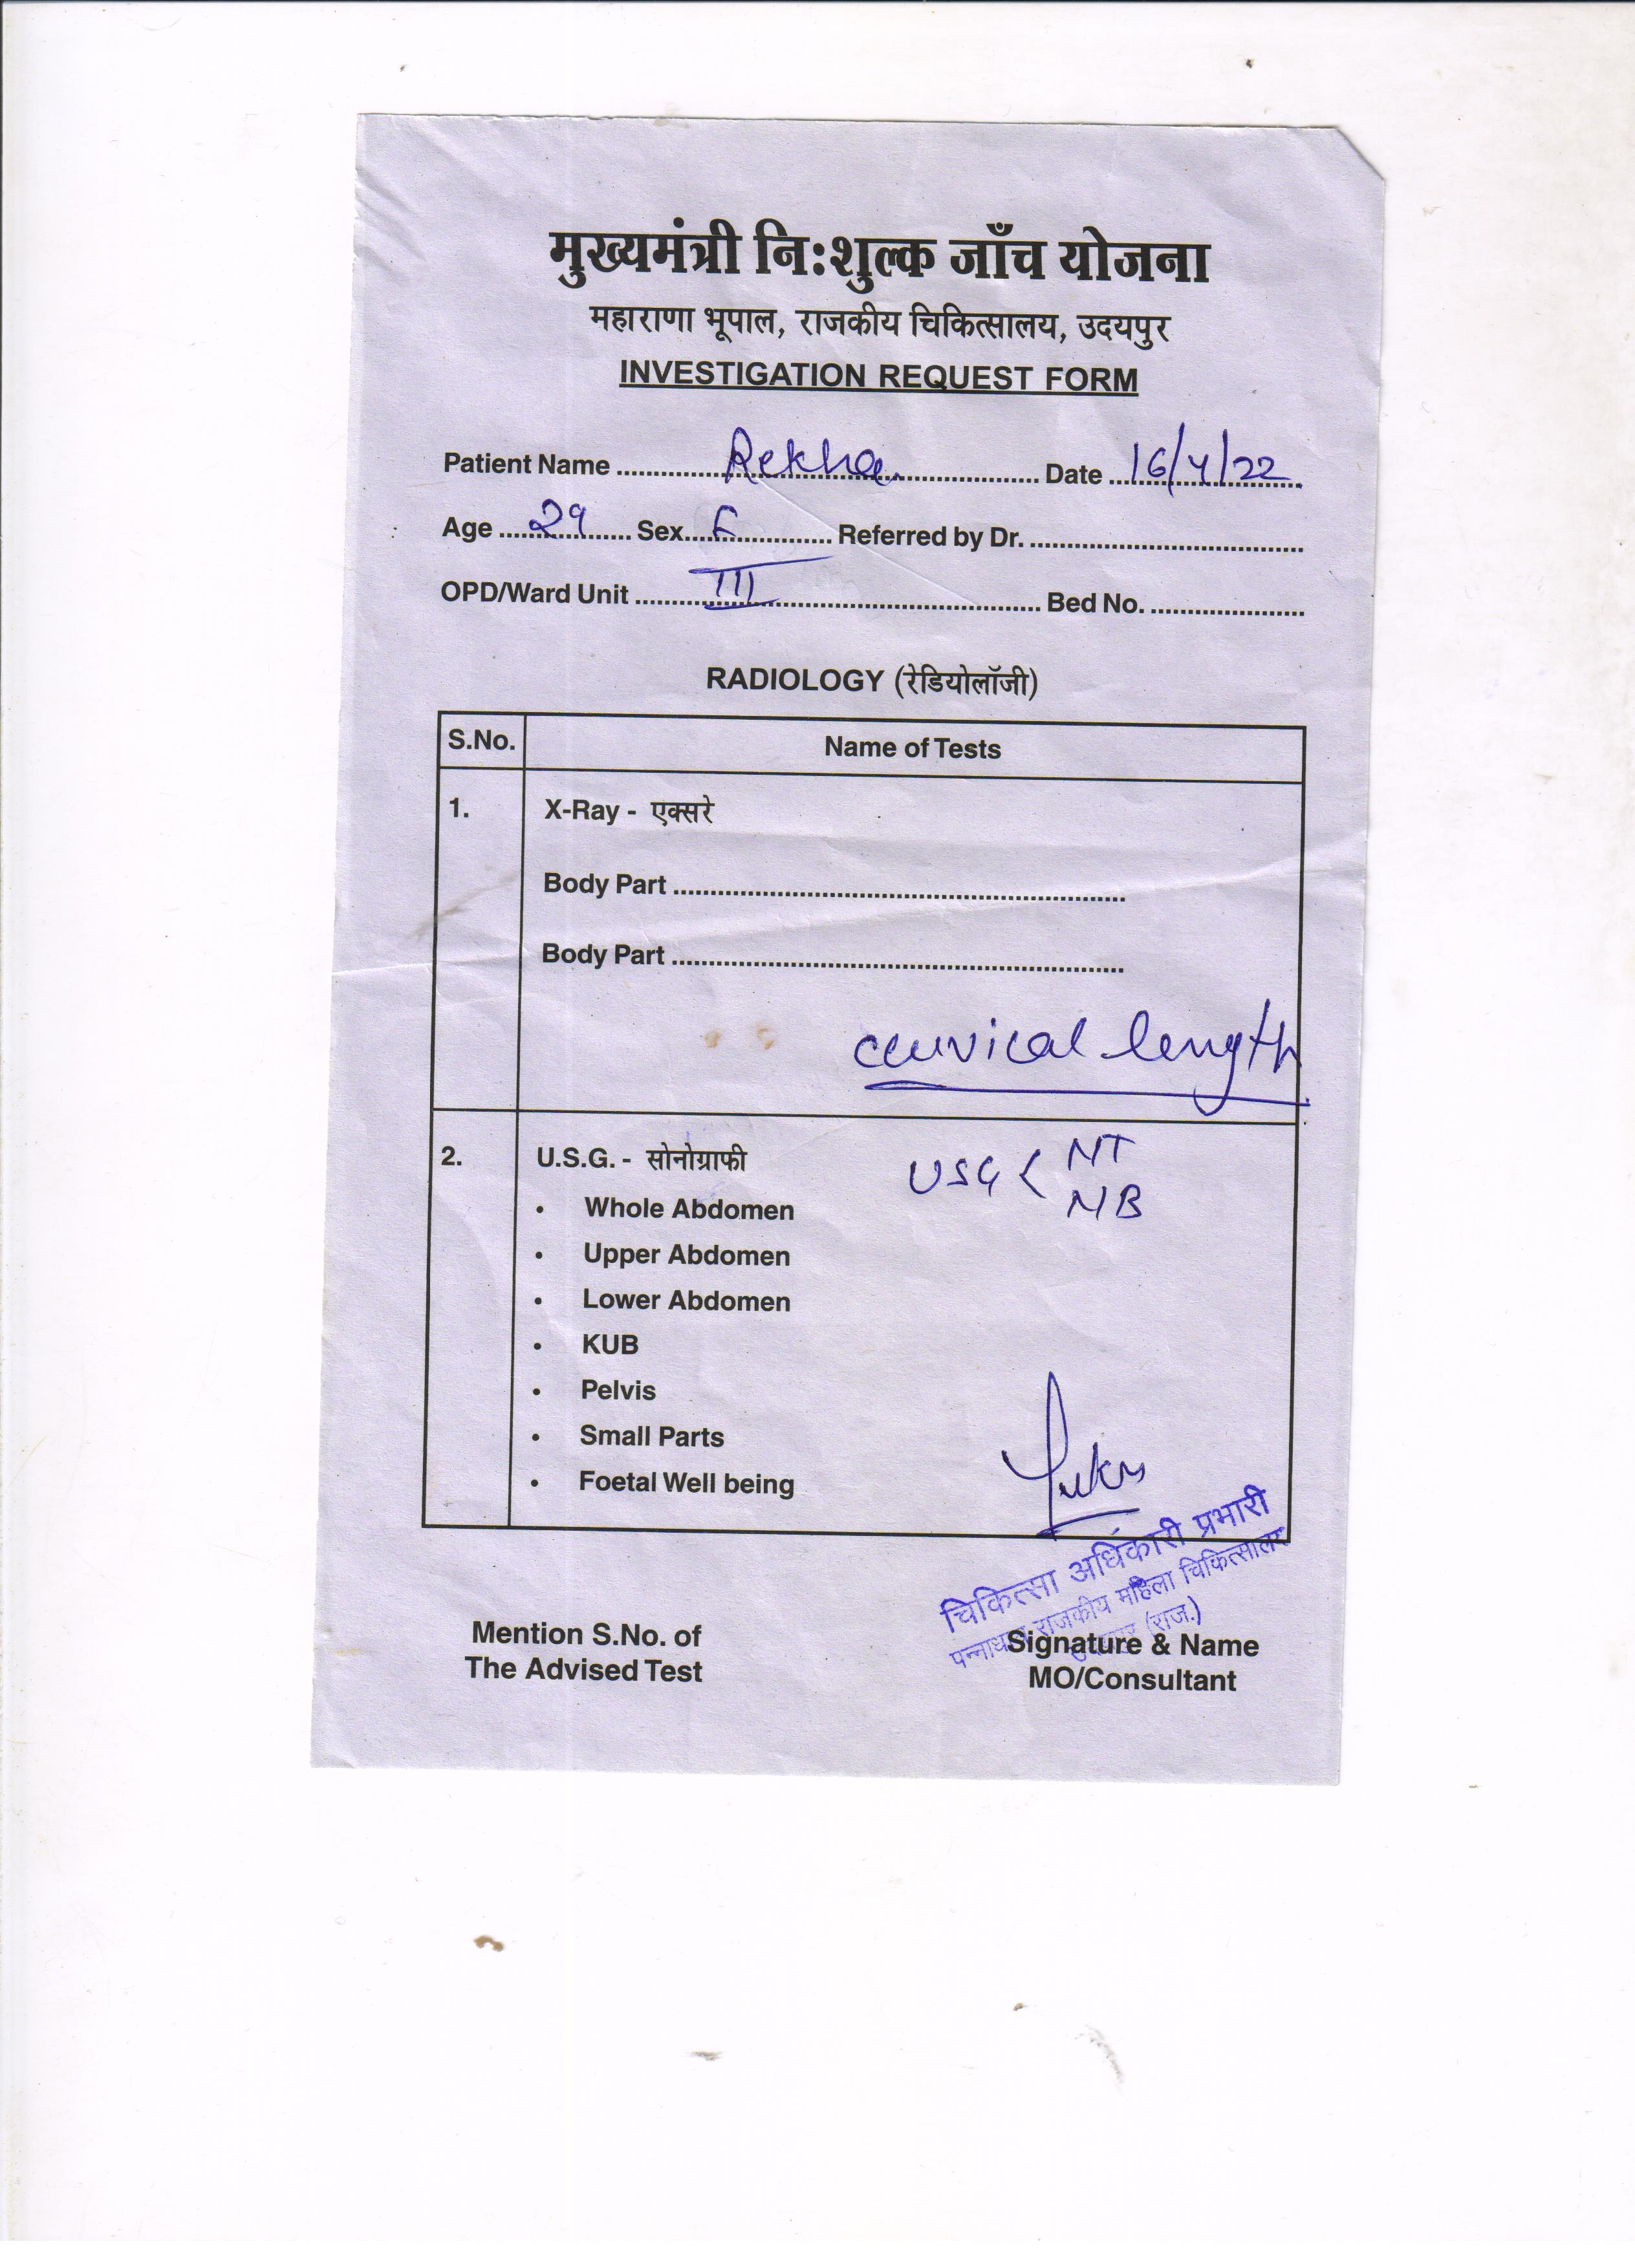 मुख्यमंत्री नि:शुल्क जाँच योजना
महाराणा भूपाल, राजकीय चिकित्सालय, उदयपुर
INVESTIGATION REQUEST FORM
Patient Name ........ Rekha ........ Date ........ 16/4/22
Age ........ 29 ........ Sex ........ F ........ Referred by Dr. ........
OPD/Ward Unit ........ III ........ Bed No. ........
RADIOLOGY (रेडियोलॉजी)
S.No. Name of Tests
1. X-Ray - एक्सरे
Body Part ........
Body Part ........
cervical length
2. U.S.G. - सोनोग्राफी USG < NT
NB
• Whole Abdomen
• Upper Abdomen
• Lower Abdomen
• KUB
• Pelvis
• Small Parts
• Foetal Well being
चिकित्सा अधिकारी प्रभारी
पन्नाधाय राजकीय महिला चिकित्सालय
(राज.)
Mention S.No. of Signature & Name
The Advised Test MO/Consultant